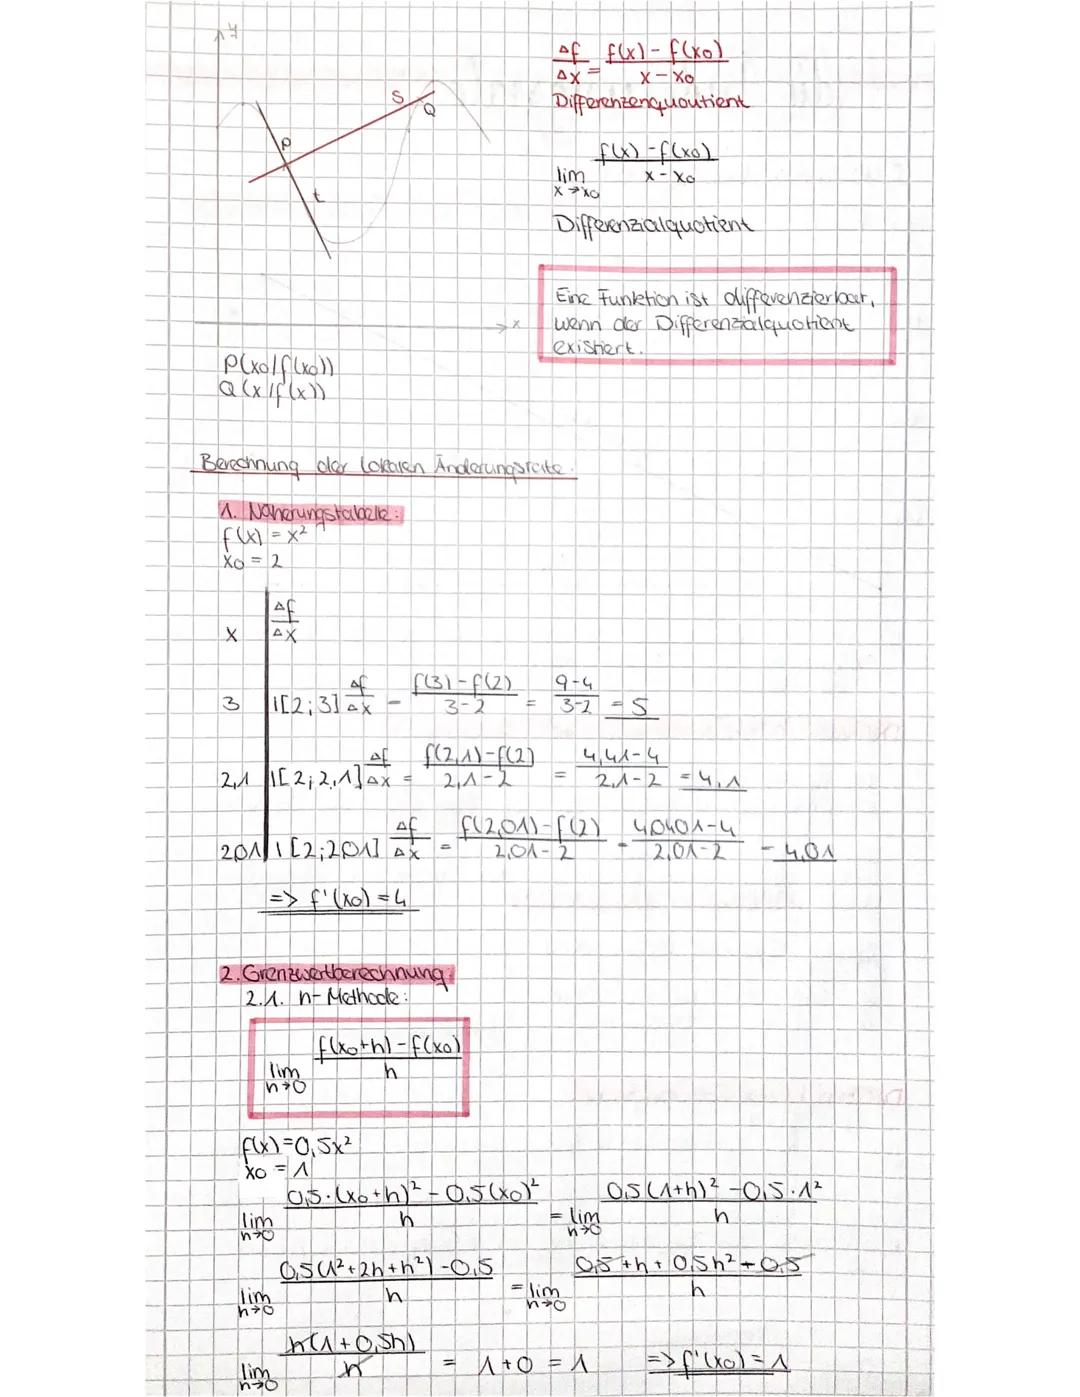 y
S
Q
P
t
x
Δf/Δx = (f(x) - f(x0))/(x - x0)
Differenzenquoutient
lim x→x0 (f(x) - f(x0))/(x - x0)
Differenzialquotient
Eine Funktion ist differenzierbar,
wenn der Differenzialquotient
existiert.
P(x0/f(x0))
Q(x/f(x))
Berechnung der lokalen Änderungsrate.
1. Näherungstabelle:
f(x) = x²
x0 = 2
x | Δf/Δx
3 | I[2;3] Δf/Δx = (f(3) - f(2))/(3-2) = (9-4)/(3-2) = 5
2,1 | I[2;2,1] Δf/Δx = (f(2,1) - f(2))/(2,1-2) = (4,41-4)/(2,1-2) = 4,1
2,01 | I[2;2,01] Δf/Δx = (f(2,01) - f(2))/(2,01-2) = (4,0401-4)/(2,01-2) = 4,01
=> f'(x0) = 4
2. Grenzwertberechnung:
2.1. h-Methode:
lim h→0 (f(x0+h) - f(x0))/h
f(x) = 0,5x²
x0 = 1
lim h→0 (0,5·(x0+h)² - 0,5(x0)²)/h = lim h→0 (0,5(1+h)² - 0,5·1²)/h
lim h→0 (0,5(1²+2h+h²) - 0,5)/h = lim h→0 (0,5+h+0,5h²-0,5)/h
lim h→0 h(1+0,5h)/h = 1+0 = 1 => f'(x0) = 1